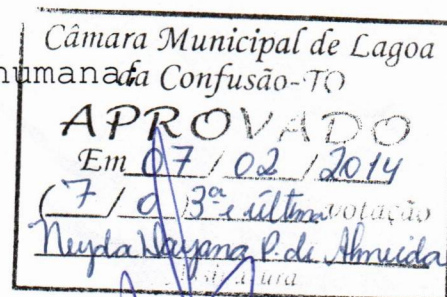 Câmara Municipal de Lagoa
humana
da Confusão-TO
APROVADO
Em 07 / 02 / 2014
( 7 / 0 ) 3ª e última votação
Neyda Dayana P. de Almeida
Assinatura